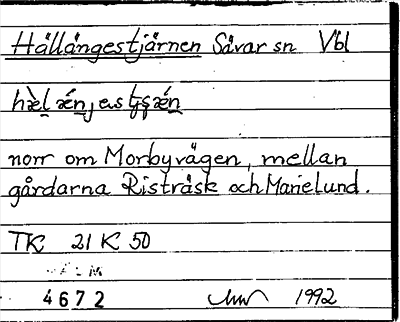 Hällångestjärnen Sävar sn Vbl
norr om Morbyvägen, mellan
gårdarna Risträsk och Marielund.
TK 21 K 50
4672 1992